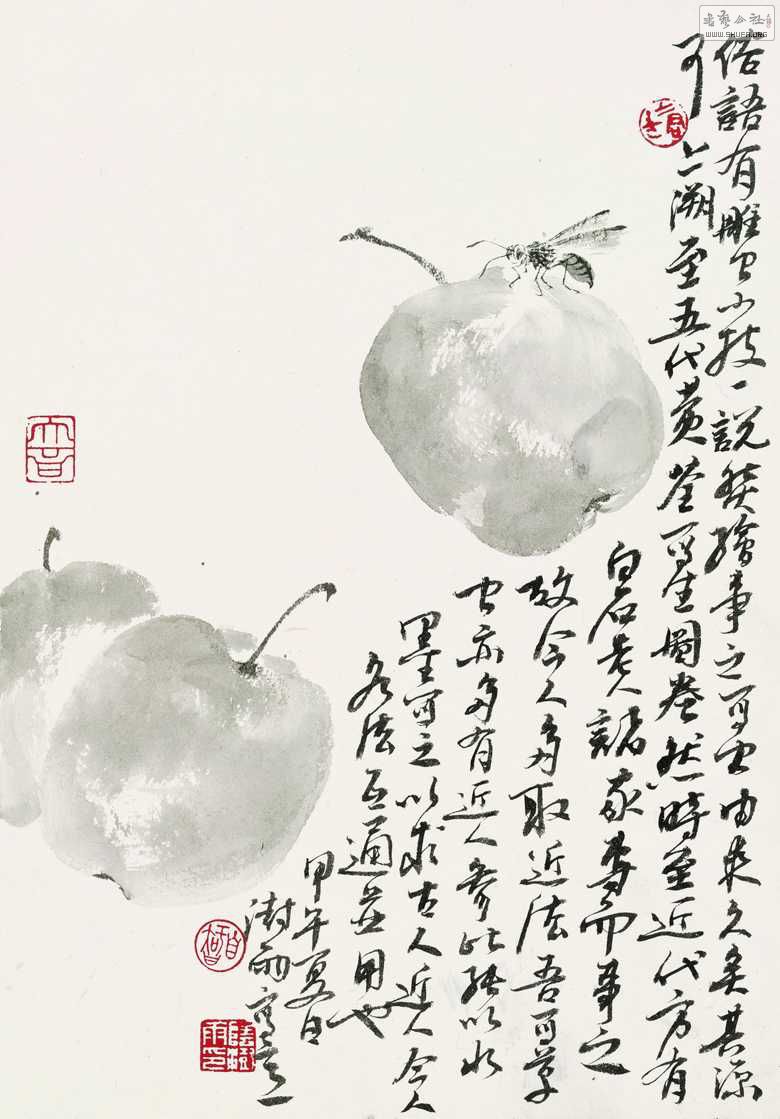 俗語有雕虫小技一說然繪事之写虫由来久矣其源
可上溯至五代黄荃写生圖卷然時至近代方有
白石老人諸家專而事之
故今人多取近法吾写草
虫亦多有近人参此稿以水
墨写之以求古人近人今人
各法互通並用也
甲午夏日
樹雨寫意
WWW.SHUFA.ORG